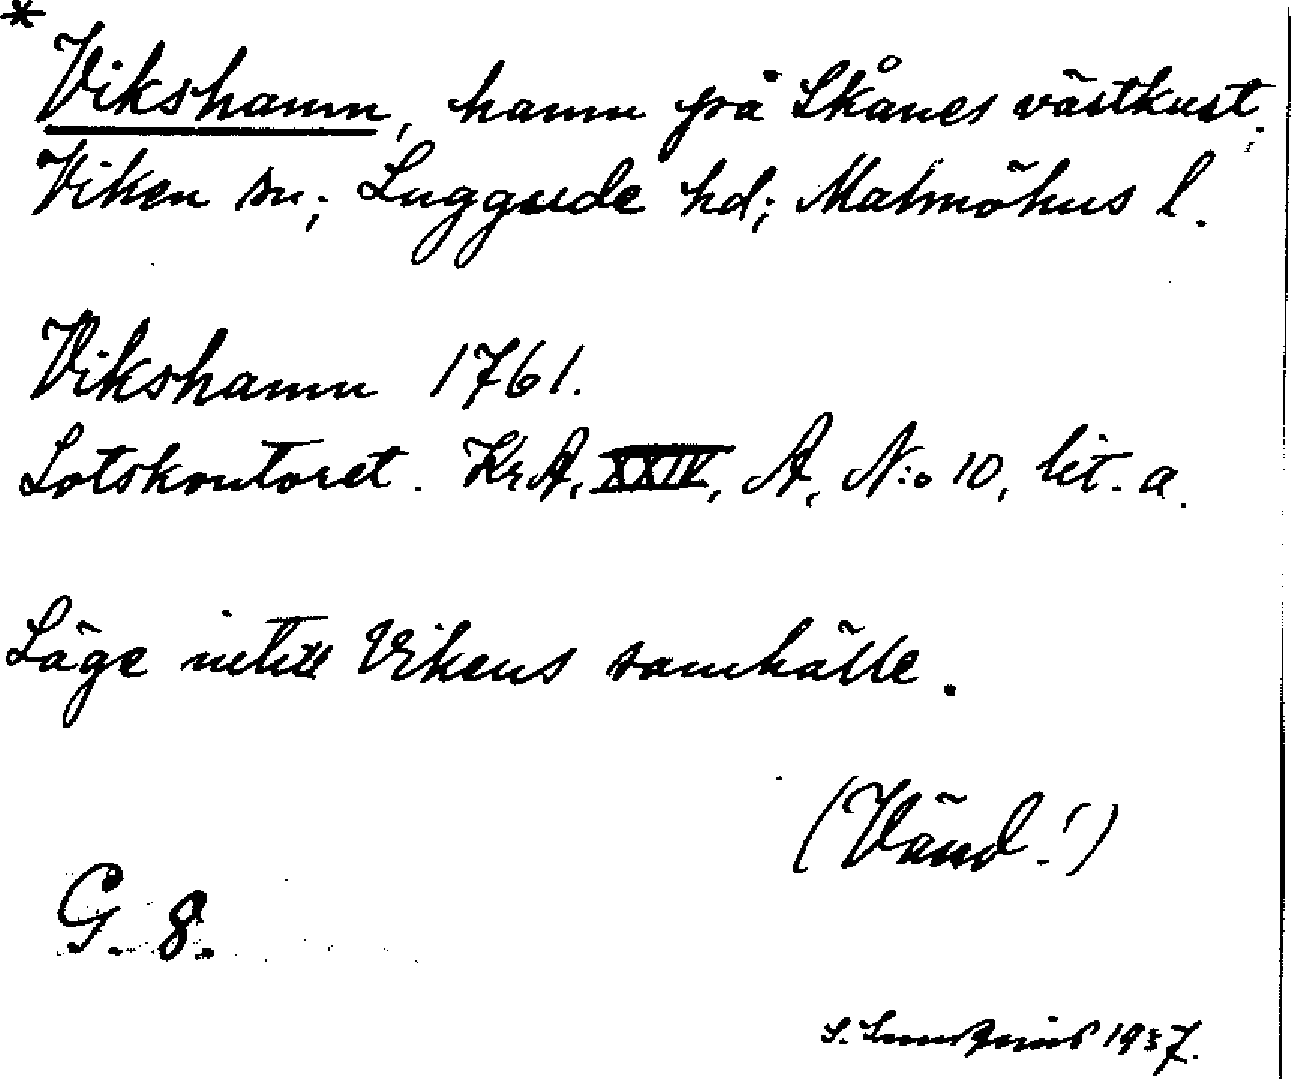 *
Vikshamn, hamn på Skånes västkust;
Viken sn; Luggude hd; Malmöhus l.
Vikshamn 1761.
Lotskontoret. KrA, XXIV, A, N:o 10, lit. a.
Läge intill Vikens samhälle.
(Vänd!)
G. 8.
S. Lundquist 1937.